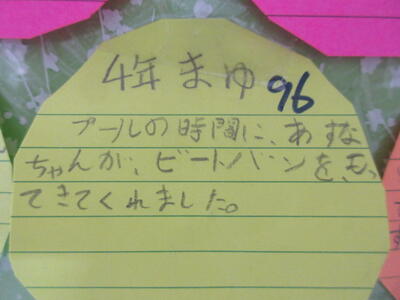 4年 まゆ 96
プールの時間に、あすな
ちゃんが、ビートバンを、もっ
てきてくれました。